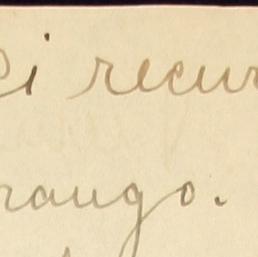 i recur
rango.